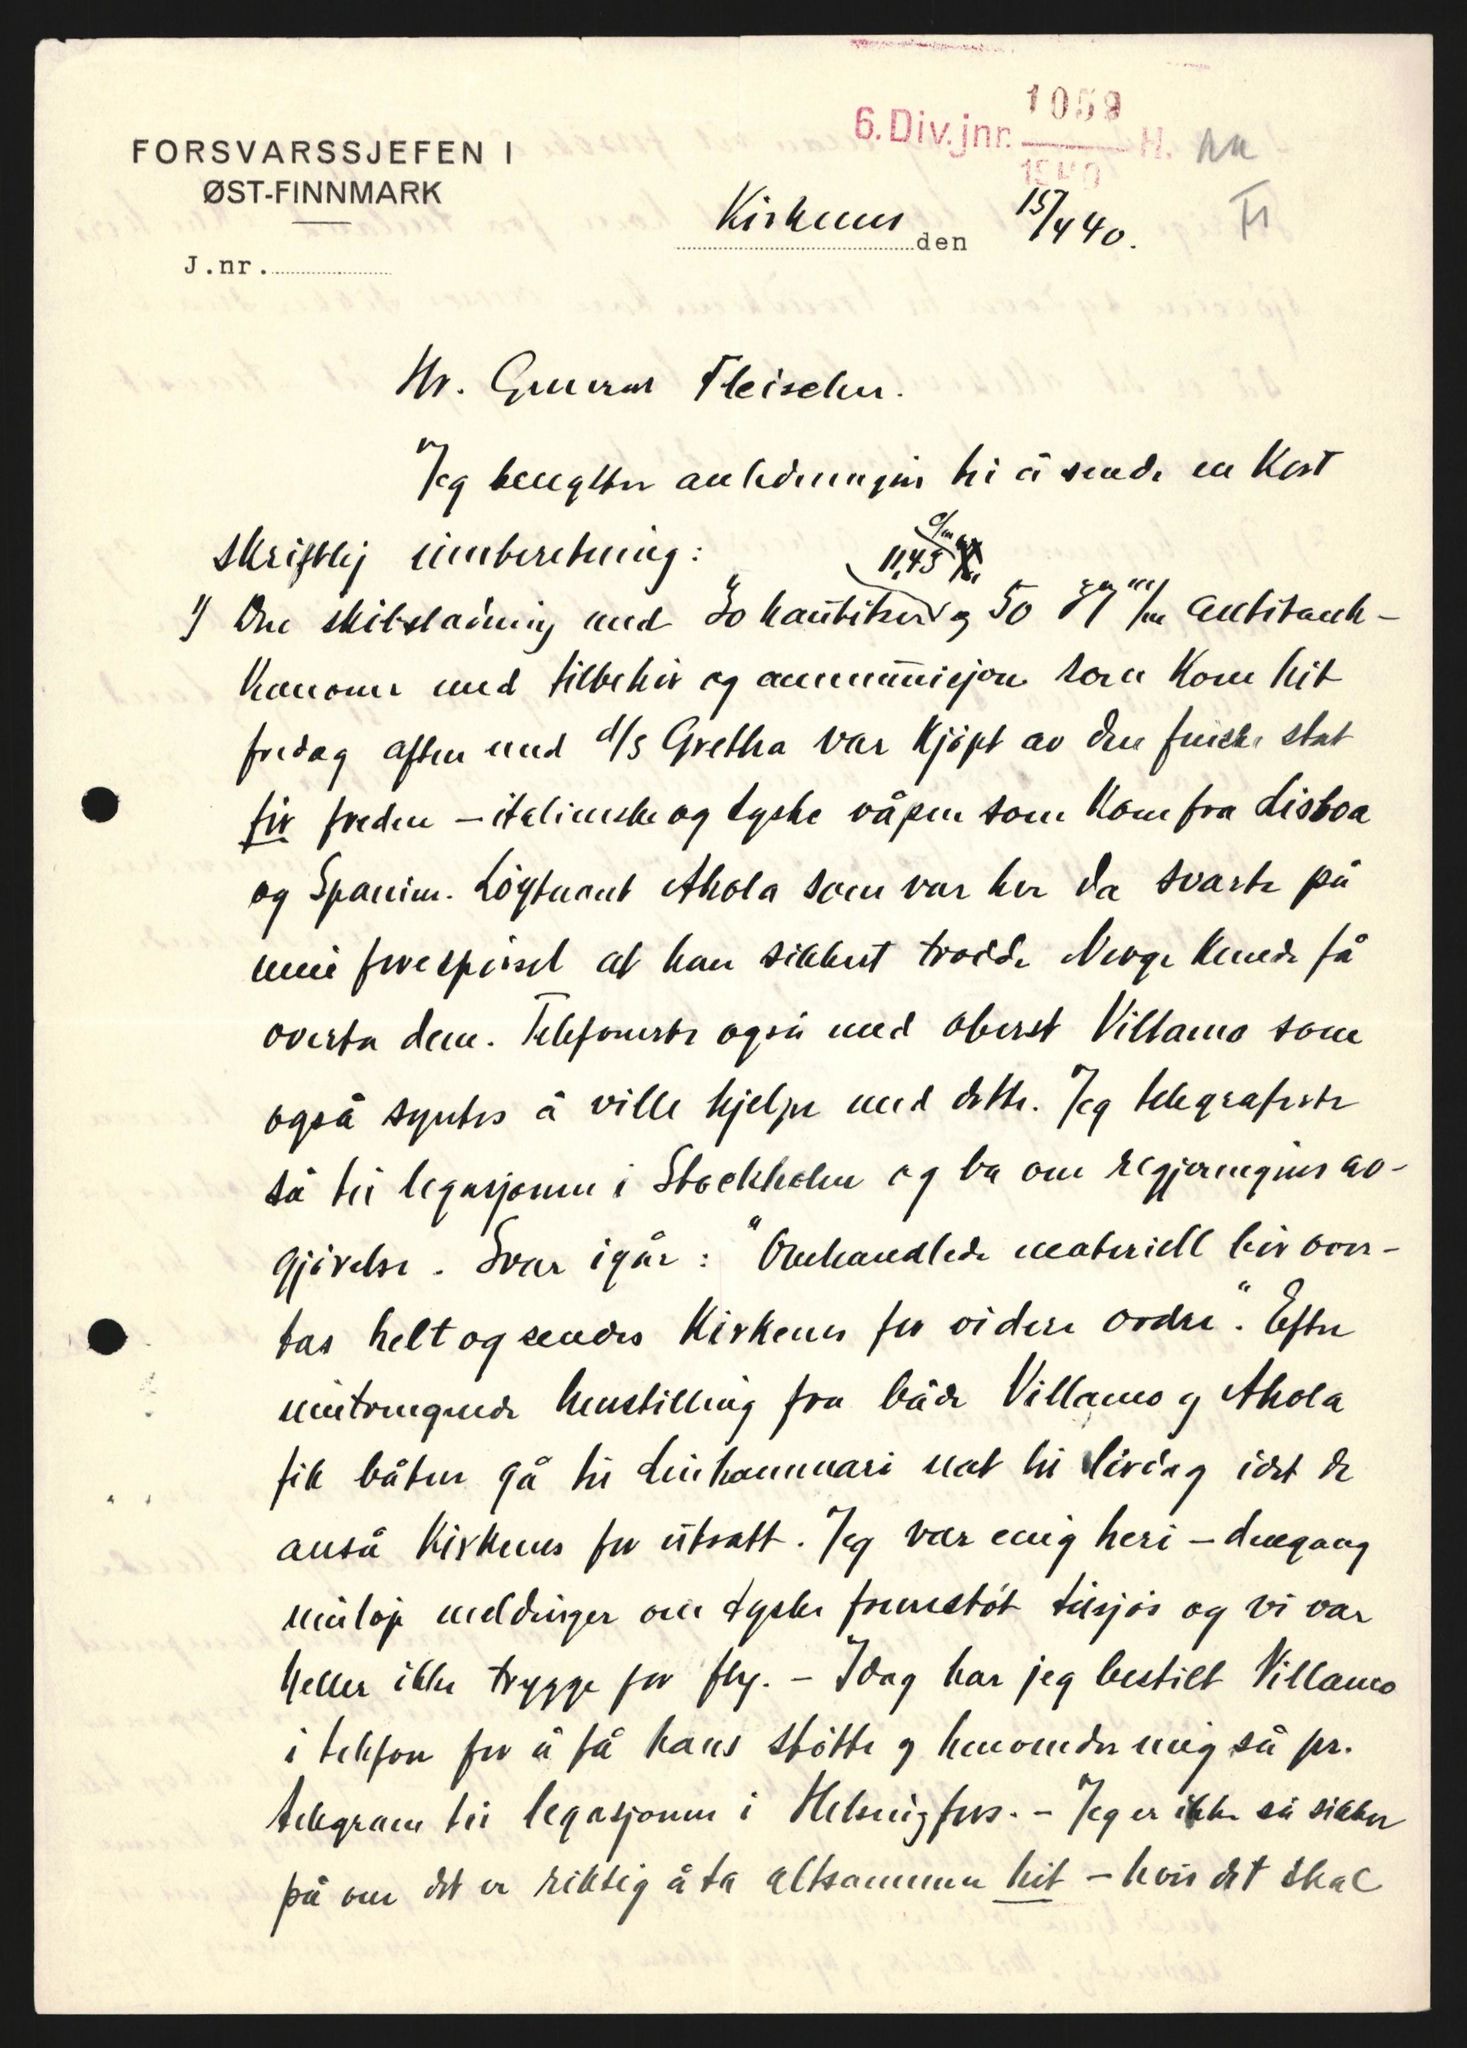 6. Div. jnr. 1059 H.
1940
FORSVARSSJEFEN I
ØST-FINNMARK
Kirkenes den 15/4 40.
J.nr.
Hr. General Fleischer.
Jeg benytter anledningen til å sende en kort
skriftlig innberetning:
11,43 c/m
1) Den skibsladning med 30 haubitser og 50 37 m/m antitank-
kanoner med tilbehør og ammunisjon som kom hit
fredag aften med d/s Gretha var kjøpt av den finske stat
før freden – italienske og tyske våpen som kom fra Lisboa
og Spanien. Løytnant Ahola som var her da svarte på
min forespørsel at han sikkert trodde Norge kunde få
overta dem. Telefonerte også med oberst Villamo som
også syntes å ville hjelpe med dette. Jeg telegraferte
så til legasjonen i Stockholm og ba om regjeringens av-
gjørelse. Svar igår: "Omhandlede materiell bør over-
tas helt og sendes Kirkenes for videre ordre". Efter
inntrengende henstilling fra både Villamo og Ahola
fik båten gå til Linhammari nat til lørdag idet de
anså Kirkenes for utsatt. Jeg var enig heri – dengang
innløp meldinger om tyske fremstøt tilsjøs og vi var
heller ikke trygge for fly. – Idag har jeg bestilt Villamo
i telefon for å få hans støtte og henvender mig så pr.
telegram til legasjonen i Helsingfors. – Jeg er ikke så sikker
på om det er riktig å ta altsammen hit – hvis det skal